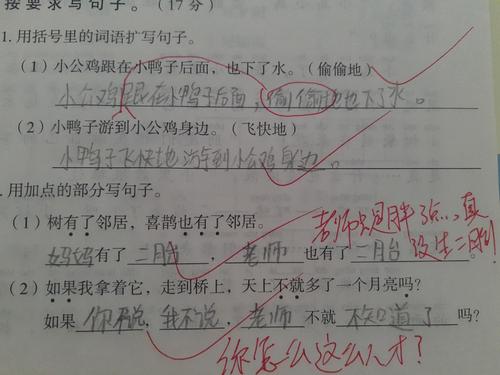 按要求写句子。(17分)
1. 用括号里的词语扩写句子。
(1)小公鸡跟在小鸭子后面,也下了水。(偷偷地)
小公鸡跟在小鸭子后面,偷偷地也下了水。
(2)小鸭子游到小公鸡身边。(飞快地)
小鸭子飞快地游到小公鸡身边。
. 用加点的部分写句子。
(1)树有了邻居,喜鹊也有了邻居。
妈妈有了二胎,老师也有了二胎。
老师只是胖了点…,真没生二胎!
(2)如果我拿着它,走到桥上,天上不就多了一个月亮吗?
如果你不说,我不说,老师不就不知道了吗?
你怎么这么人才?